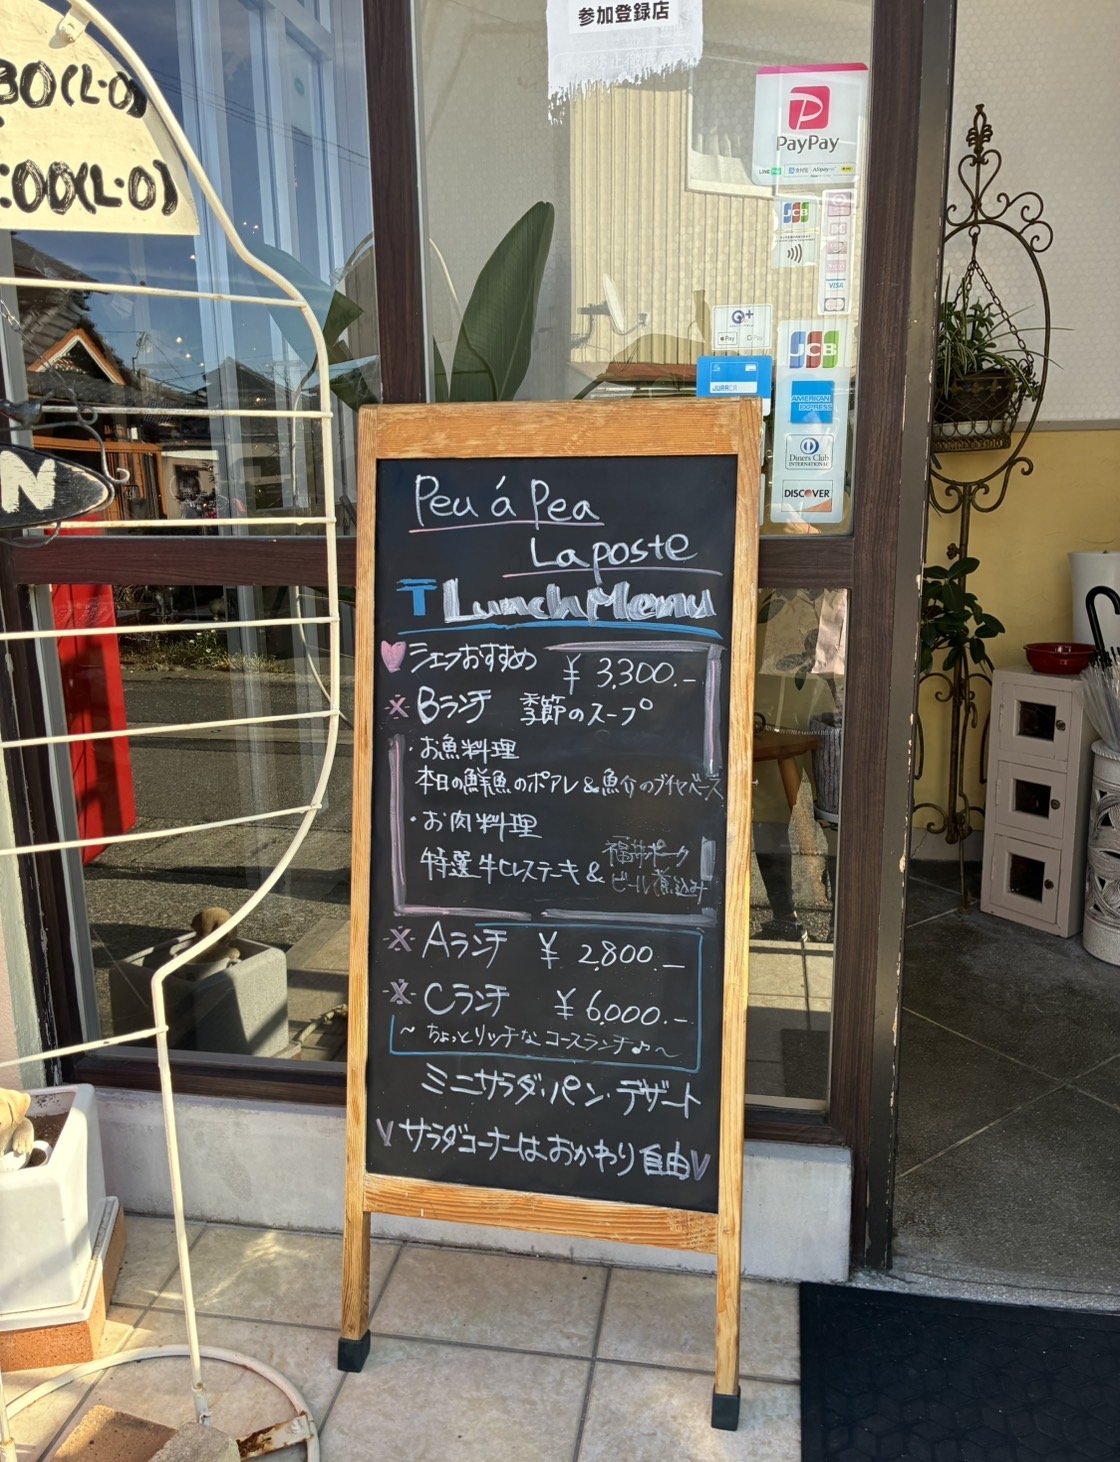 参加登録店
30(L.O)
:00(L.O)
PayPay
JCB
VISA
QUICPay
Pay
JCB
AMERICAN EXPRESS
Diners Club
INTERNATIONAL
DISCOVER
N
Peu á Pea
Laposte
〒Lunch Menu
シェフおすすめ ¥3,300.-
※Bランチ 季節のスープ
・お魚料理
本日の鮮魚のポアレ&魚介のブイヤベース
・お肉料理
特選牛ヒレステーキ&福井ポークビール煮込み
※Aランチ ¥2,800.-
※Cランチ ¥6,000.-
~ちょっとリッチなコースランチ♪~
ミニサラダ・パン・デザート
サラダコーナーはおかわり自由